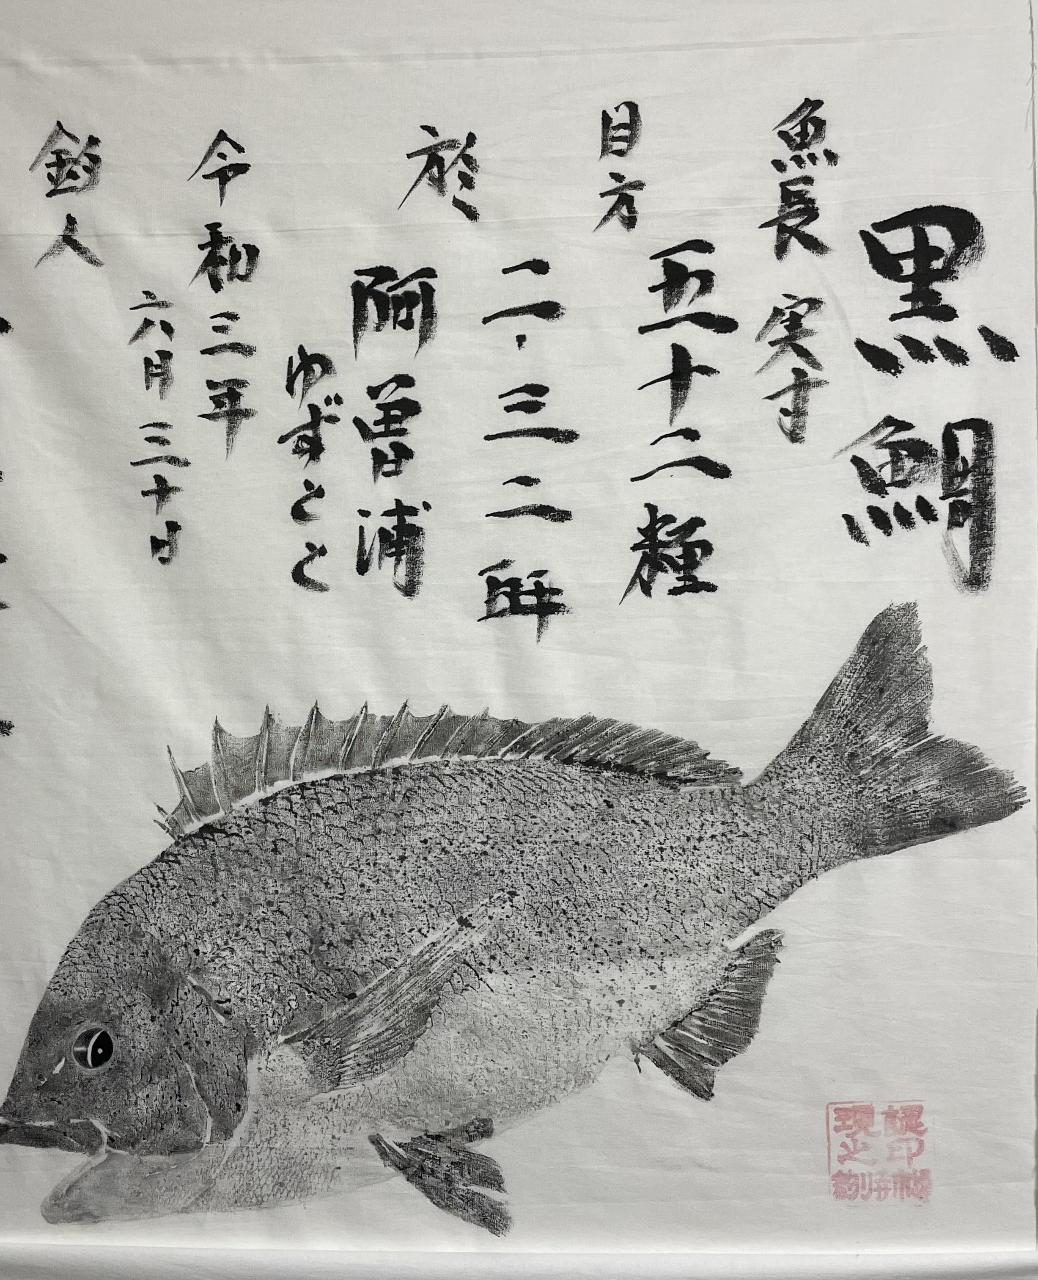 黒鯛
魚長 実寸
五十二糎
目方
二・三二瓩
於
阿曽浦
ゆずとと
令和三年
六月三十日
釣人